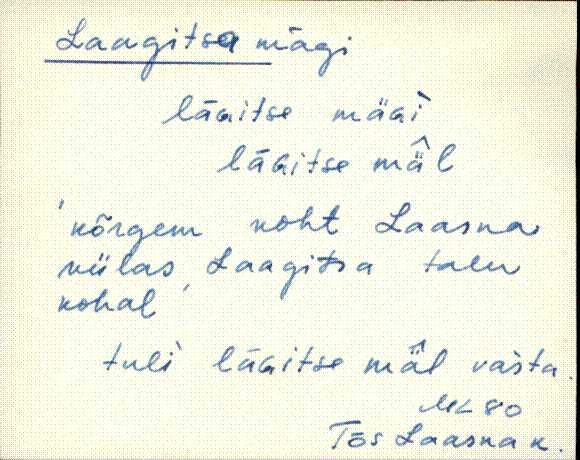 Laagitsa mägi
lāGitse mäGì
lāGitse mä̂l
'kõrgem koht Laasna
külas, Laagitsa talu
kohal'
tulì lāGitse mä̂l vasta.
MK 80
Tõs Laasna k.